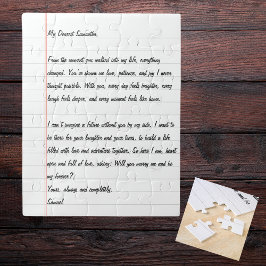 My Dearest Samantha,
From the moment you walked into my life, everything
changed. You've shown me love, patience, and joy I never
thought possible. With you, every day feels brighter, every
laugh feels deeper, and every moment feels like home.
I can't imagine a future without you by my side. I want to
be there for your laughter and your tears, to build a life
filled with love and adventure together. So here I am, heart
open and full of love, asking: Will you marry me and be
my forever?
Yours, always and completely,
Samuel